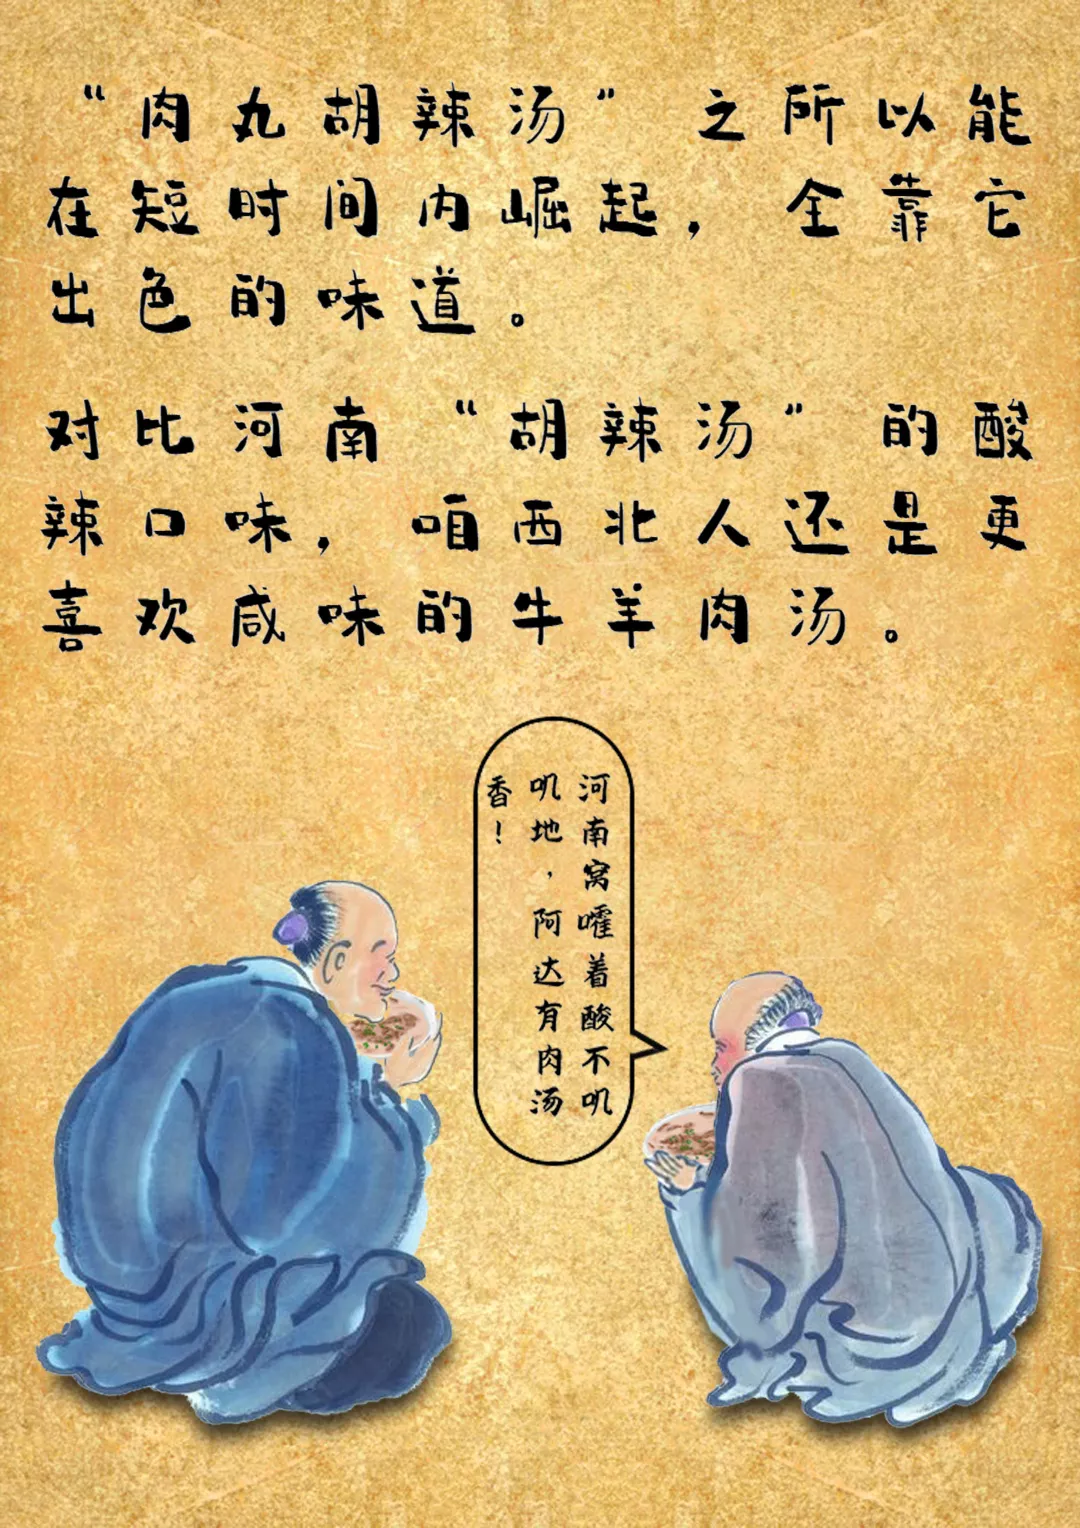 “肉丸胡辣汤”之所以能
在短时间内崛起，全靠它
出色的味道。
对比河南“胡辣汤”的酸
辣口味，咱西北人还是更
喜欢咸味的牛羊肉汤。
河南窝嚯着酸不叽
叽地，阿达有肉汤
香！